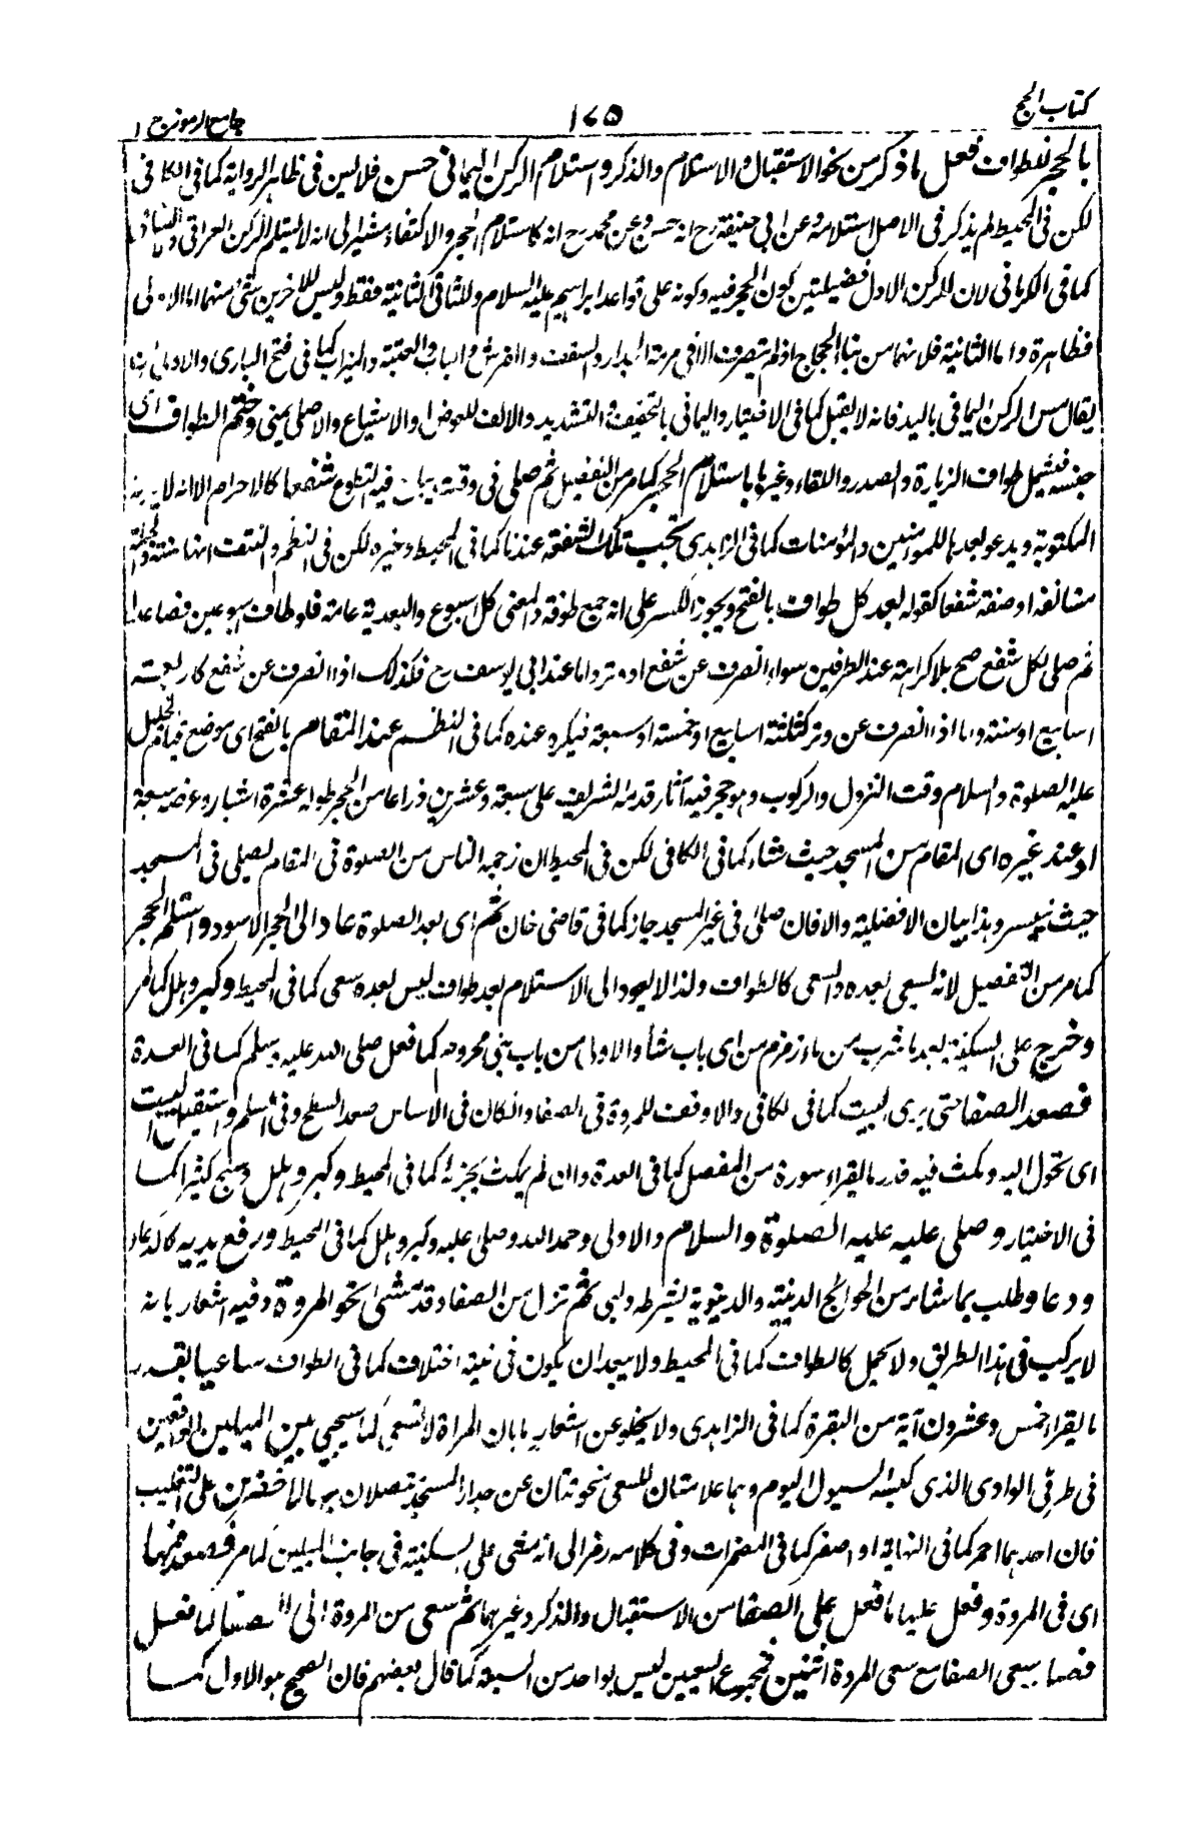 كتاب الحج
١٧٥
جامع الرموز ج ١
بالحجر للطواف فعل ما ذكر من نحو الاستقبال والاستلام والذكر واستلام الركن اليماني حسن فلا ليس في ظاهر الرواية كما في الكافي
لكن في المحيط لم يذكر في الاصل استلامه وعن ابي حنيفة رح انه حسن وعن محمد رح انه كاستلام الحجر والاكتفاء مشير الى انه لا يستلم الركن العراقي والشامي
كما في الكرماني لان للركن الاول فضيلتين كون الحجر فيه وكونه على قواعد ابراهيم عليه السلام وللثاني الثانية فقط وليس للاخرين شئ منهما اما الاولى
فظاهرة واما الثانية فلانهما من بناء الحجاج اذ لم يتصرف الا في مرمة الجدار والسقف والفرش والباب والعتبة والميزاب كما في فتح الباري والاولى ان
يقال مس الركن اليماني باليد فانه لا يقبل كما في الاختيار واليماني بالتخفيف والتشديد والالف للعوض او الاشباع والاصلي يمني وختم الطواف اى
جنسه فيشمل طواف الزيارة والصدر واللقاء وغيرها باستلام الحجر كما مر من التفصيل ثم صلى في وقت يباح فيه التطوع شفعا كالاحرام الا انه لا
المكتوبة ويدعو بعدها للمؤمنين والمؤمنات كما في الزاهدى تجب تلك الشفعة عندنا كما في المحيط وغيره لكن في النظم والنتف انها سنة والجملة
مستانفة او صفة شفعا كقوله بعد كل طواف بالفتح ويجوز الكسر على انه جمع طوفة والمعنى كل اسبوع والبعدية عامة فلو طاف اسبوعين فصاعدا
ثم صلى لكل شفع صح بلا كراهة عند الطرفين سواء انصرف عن شفع او وتر واما عند ابي يوسف رح فكذلك اذا انصرف عن شفع كاربعة
اسابيع او ستة واما اذا انصرف عن وتر كثلثة اسابيع او خمسة او سبعة فيكره عنده كما في النظم عند المقام بالفتح اى موضع قيام الخليل
عليه الصلوة والسلام وقت النزول والركوب وهو حجر فيه آثار قدمه الشريف على سبعة وعشرين ذراعا من الحجر طوله عشرة اشبار وعرضه سبعة
او عند غيره اى المقام من المسجد حيث شاء كما في الكافي لكن في المحيط ان زحمه الناس من الصلوة في المقام يصلى في المسجد
حيث تيسر وهذا بيان الافضلية والا فان صلى في غير المسجد جاز كما في قاضى خان ثم اى بعد الصلوة عاد الى الحجر الاسود واستلم الحجر
كما مر من التفصيل لانه يسعى بعده والسعى كالطواف ولذا لا يعود الى الاستلام بعد طواف ليس بعده سعى كما في المحيط وكبر وهلل كما مر
وخرج على السكينة بعد ما شرب من ماء زمزم من اى باب شاء والاولى من باب بني مخزوم كما فعل صلى الله عليه وسلم كما في العدة
فصعد الصفا حتى يرى البيت كما في الكافي والاوفق للمروة في الصفا وان كان في الاساس صعد السطح وفي السلم واستقبل البيت
اى تحول اليه ومكث فيه قدر ما يقراء سورة من المفصل كما في العدة وان لم يمكث يجزئه كما في المحيط وكبر وهلل وسبح كثيرا كما
في الاختيار وصلى عليه عليه الصلوة والسلام والاولى وحمد الله وصلى عليه وكبر وهلل كما في المحيط ورفع يديه كالدعاء
ودعا وطلب بما شاء من الحوائج الدينية والدنيوية بشرطه ولبى ثم نزل من الصفا وقد مشى نحو المروة وفيه اشعار بانه
لا يركب في هذا الطريق ولا يحمل كالطواف كما في المحيط ولا يبعد ان يكون في نيته اختلاف كما في الطواف ساعيا بقدر
ما يقراء خمس وعشرون آية من البقرة كما في الزاهدى ولا يخلو عن اشعار ما بان المراة لا تسعى كما سيجئ بين الميلين الواقعين
في طرفي الوادى الذى كبسته السيول اليوم وهما علامتان للسعى منحوتتان عن جدار المسجد متصلان به الاخضرين على التغليب
فان احدهما احمر كما في النهاية او اصفر كما في المضمرات وفي كلامه رمز الى انه مشى على السكينة في جانب الميلين كما مر فصعد فيها
اى في المروة وفعل عليها ما فعل على الصفا من الاستقبال والذكر وغيرهما ثم سعى من المروة الى الصفا كما فعل
فصار سعى الصفا مع سعى المروة اثنين فمجموع السعيين ليس بواحد من السبعة كما قال بعضهم فان الصحيح هو الاول كما